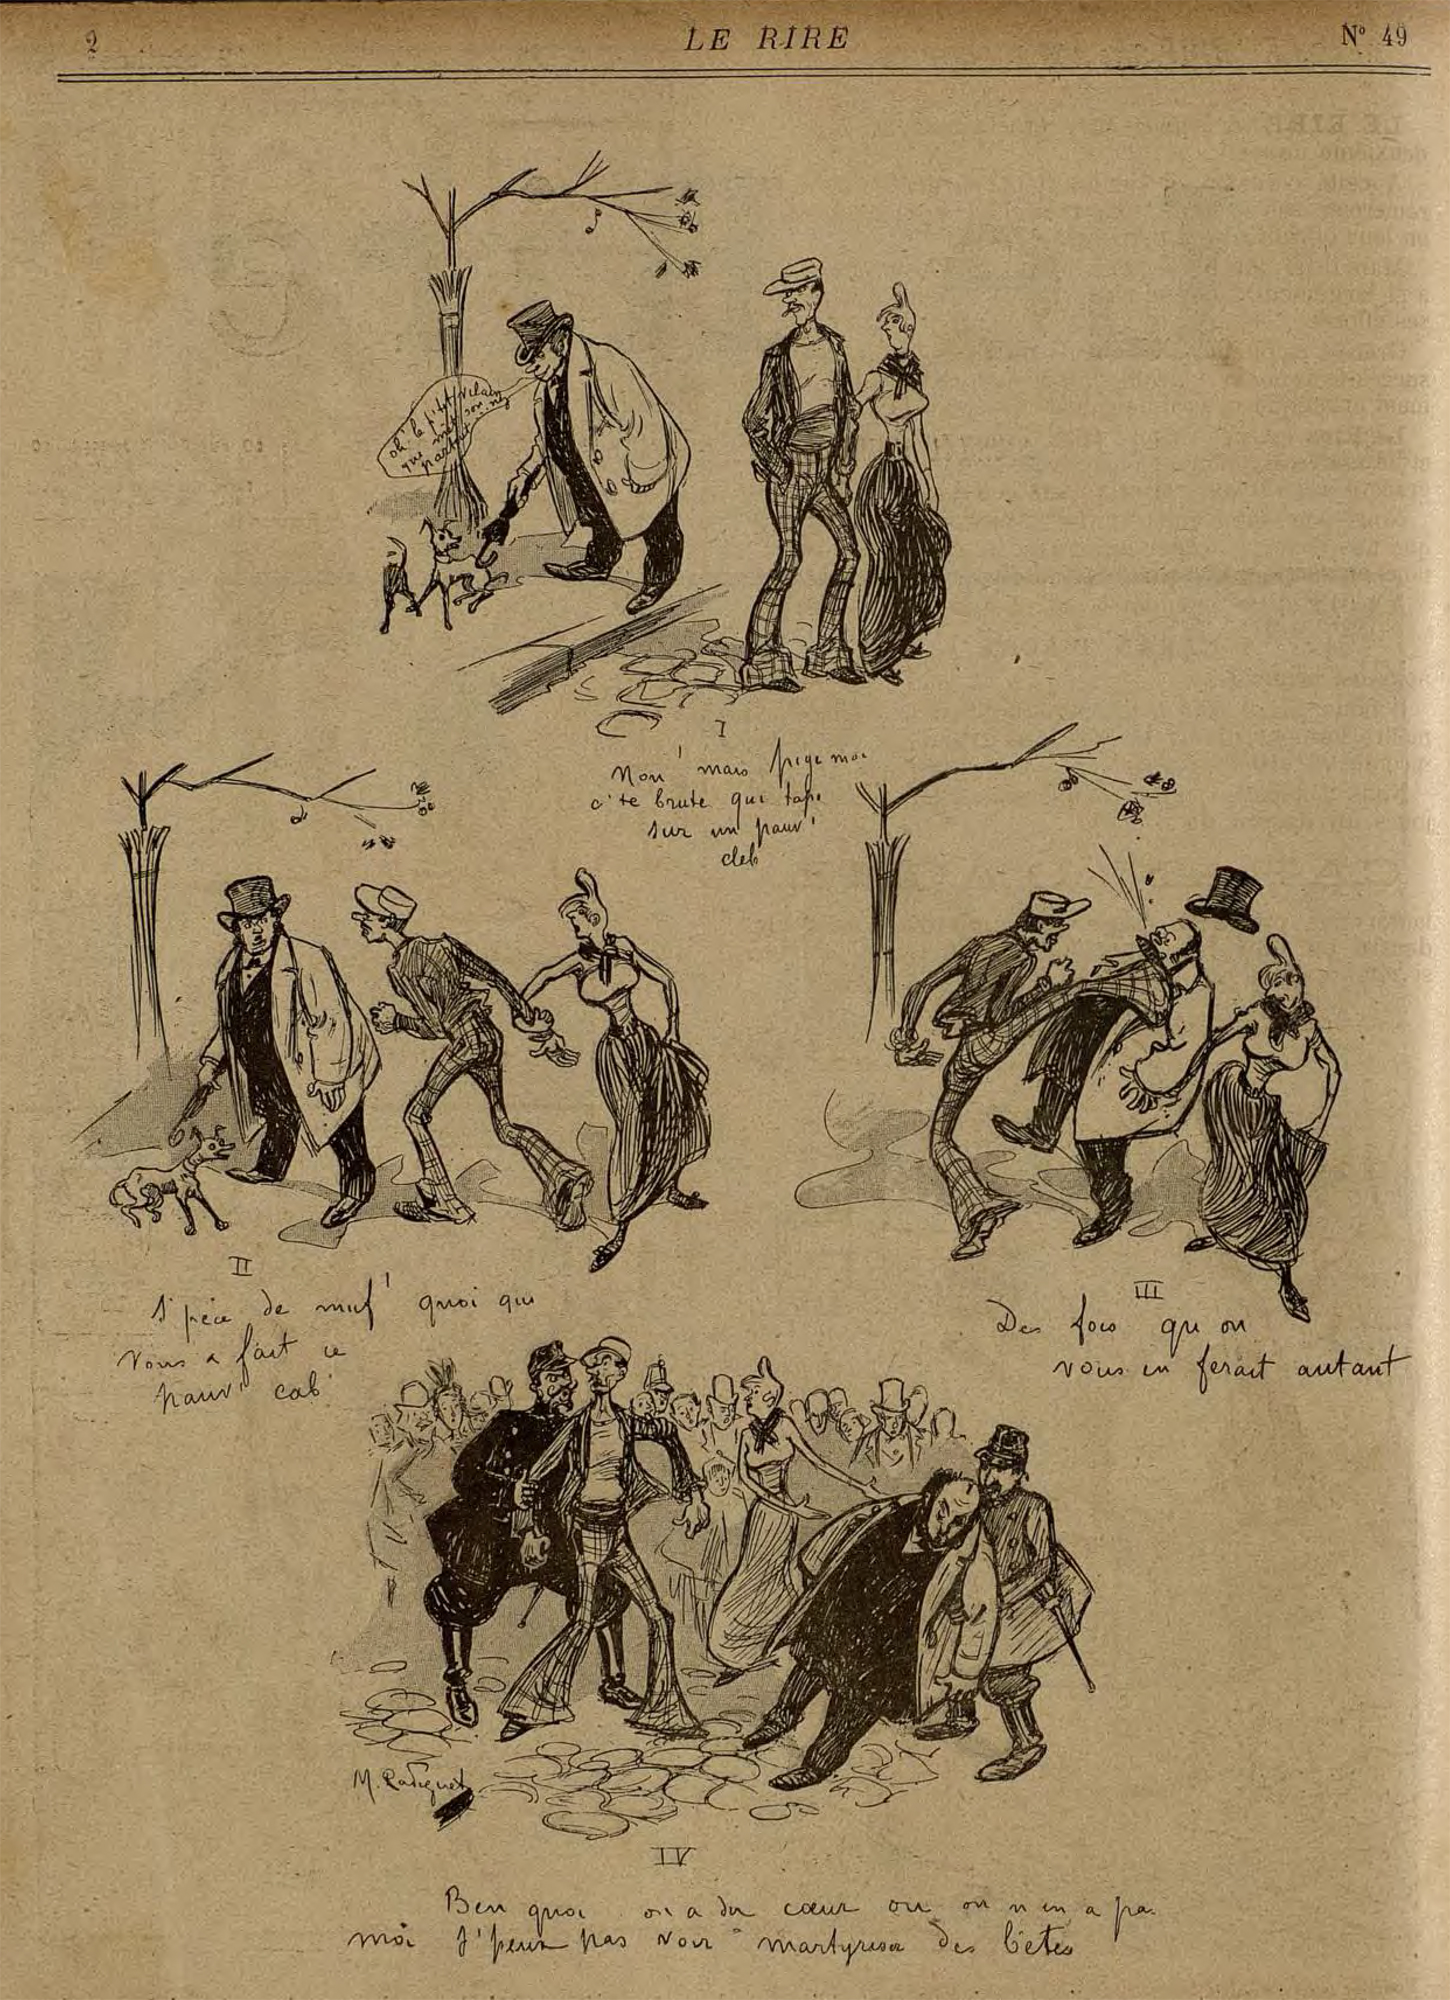 2
LE RIRE
N° 49
oh! le p'tit vilain
qui met son nez
partout
I
Non! mais pige moi
c'te brute qui tape
sur un pauv'
cleb
II
S'pèce de muf' quoi qui
vous a fait ce
pauv' cab'
III
Des fois qu on
vous en ferait autant
M. Radiguet
IV
Ben quoi on a du cœur ou on n en a pas
moi j'peux pas voir martyriser des bêtes